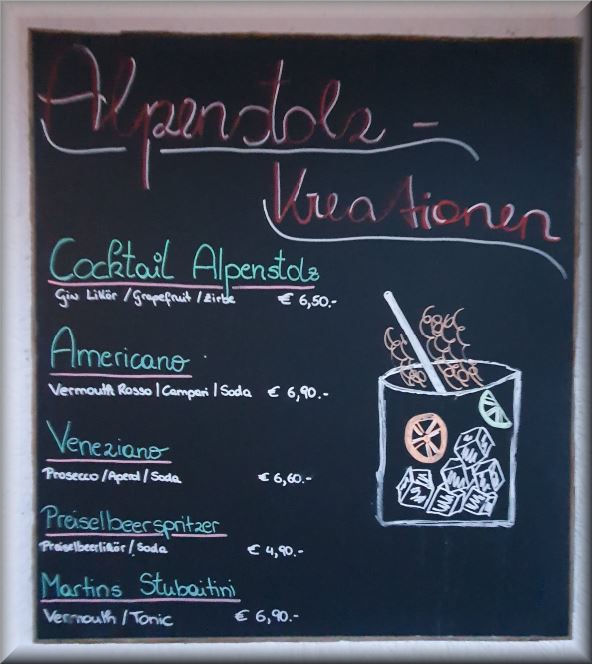 Alpenstolz -
Kreationen
Cocktail Alpenstolz
Gin Likör / Grapefruit / Zirbe € 6,50.-
Americano
Vermouth Rosso | Campari | Soda € 6,90.-
Veneziano
Prosecco / Aperol / Soda € 6,60.-
Preiselbeerspritzer
Preiselbeerlikör / Soda € 4,90.-
Martins Stubaitini
Vermouth / Tonic € 6,90.-